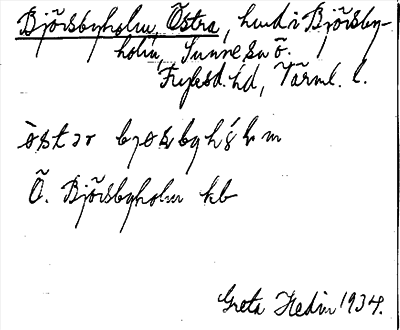 Björsbyholm, Östra, hmd i Björsby-
holm, Sunne sn ö.
Fryksd. hd, Värml. l.
östər
Ö. Björsbyholm kb
Greta Hedin 1934.